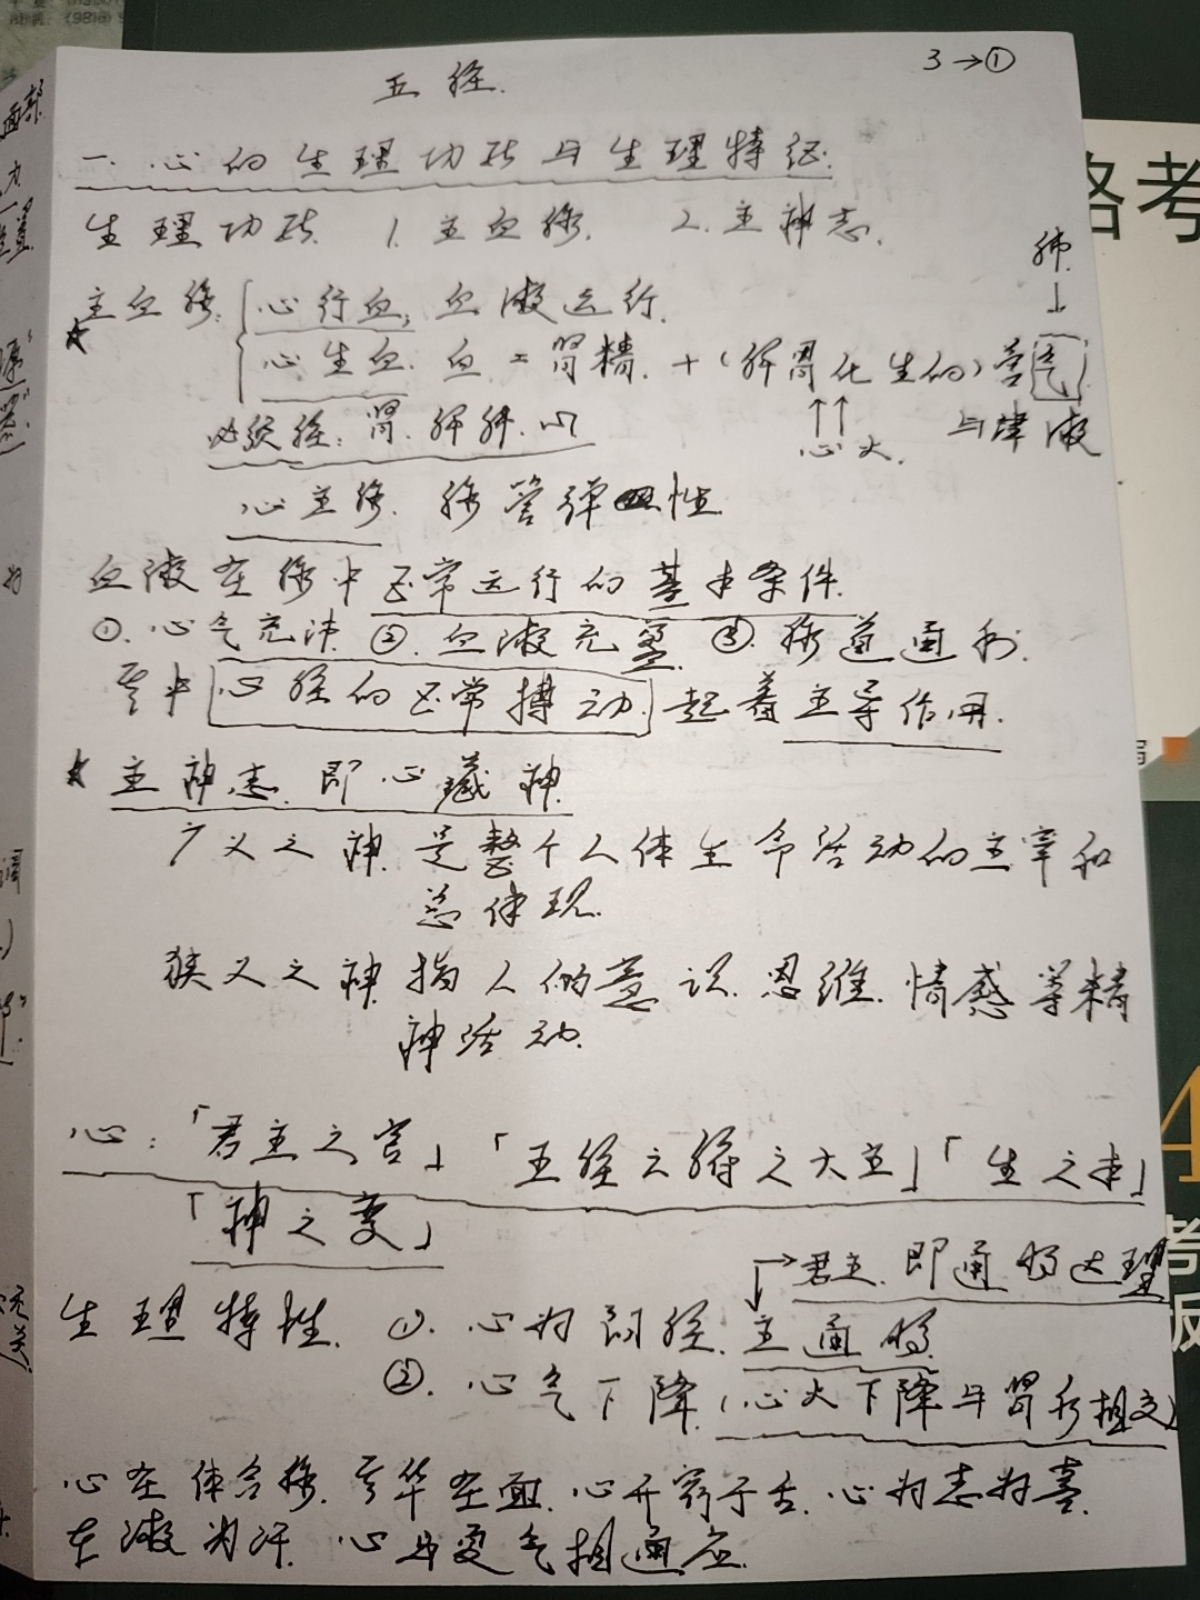 3→①
五脏.
一. 心的生理功能与生理特征.
生理功能 1.主血脉. 2.主神志.
主血脉: 心行血; 血液运行.
肺.
↓
心生血. 血 = 肾精. + (脾胃化生的) 营气
↑↑
心火.
与津液
必须经: 肾. 脾肺. 心
心主脉. 脉管弹性
血液在脉中正常运行的基本条件.
①. 心气充沛 ②. 血液充盈. ③. 脉道通利.
其中 心脏的正常搏动. 起着主导作用.
★ 主神志. 即心藏神.
广义之神. 是整个人体生命活动的主宰和
总体现.
狭义之神. 指人的意识. 思维. 情感等精
神活动.
心: 「君主之官」「五脏六腑之大主」「生之本」
「神之变」
→君主. 即通明达理
生理特性. ①. 心为阳脏. 主通明.
②. 心气下降. (心火下降与肾水相交)
心在体合脉. 其华在面. 心开窍于舌. 心为志为喜.
在液为汗. 心与夏气相通应.
各考